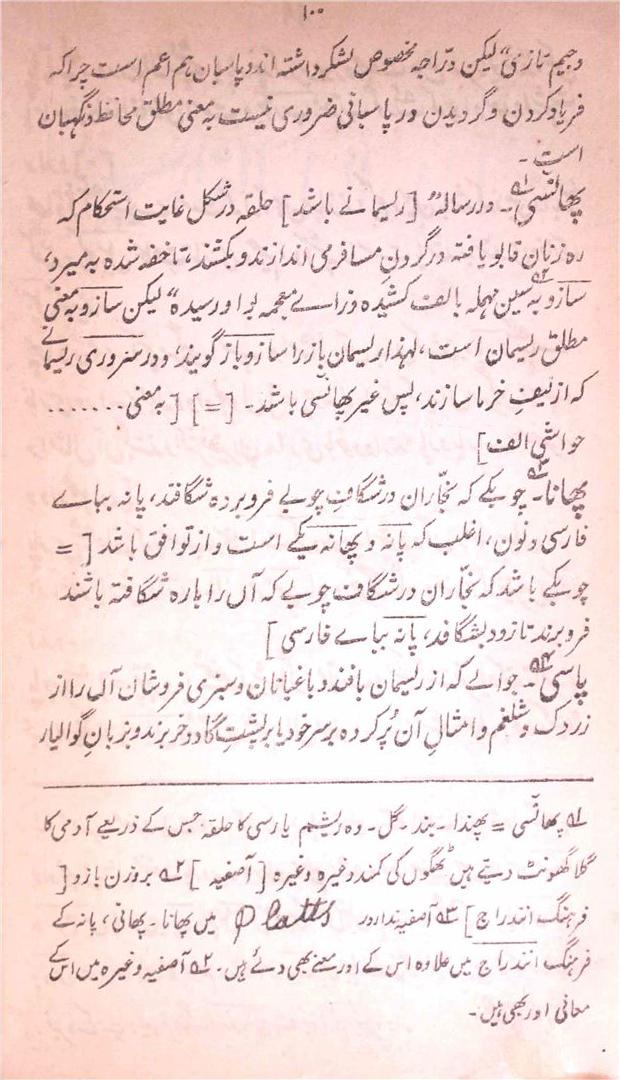 ۱۰۰
وجیم تازی“ لیکن درّاجہ مخصوص لشکر داشتہ اند و پاسبان ہم اعم است چراکہ
فریاد کردن و گردیدن در پاسبانی ضروری نیست بہ معنی مطلق محافظ و نگہبان
است۔
پھانسی۱؎۔ در رسالہ ” [ ریسمانے باشد ] حلقہ در شکل غایت استحکام کہ
رہ زنان قابو یافتہ در گردنِ مسافر می اندازند و بکشند، تا خفہ شدہ بہ میرد،
سازو۲؎ بہ سین مہملہ بالف کشیدہ و زاے معجمہ بوا و رسیدہ“ لیکن سازو بہ معنی
مطلق ریسمان است، لہذا ریسمان باز را سازو باز گویند، و در سروری ریسمانے
کہ از لیفِ خرما سازند، پس غیر پھانسی باشد۔ [ = ] [ بہ معنی ........
حواشی الف ]
پھانا۳؎۔ چوبکے کہ نجّاران در شگافِ چوبے فرو بردہ شگافند، پانہ بباے
فارسی و نون، اغلب کہ پانہ و پھانہ یکے است و از توافق باشد [ =
چوبکے باشد کہ نجّاران در شگاف چوبے کہ آں را بارہ شگافتہ باشند
فرو برند تا زود بشگافد، پانہ بباے فارسی ]
پاسی۴؎۔ جوالے کہ از ریسمان بافند و باغبانان و سبزی فروشان آں را از
زردک و شلغم و امثالِ آن پُر کردہ بر سر خود یا بر پشتِ گاو و خر برند و بزبانِ گوالیار
۱؎ پھانسی = پھندا۔ بند۔ گل۔ وہ ریشم یا رسی کا حلقہ جس کے ذریعے آدمی کا
گلا گھونٹ دیتے ہیں ٹھگوں کی کمند وغیرہ وغیرہ [ آصفیہ ] ۲؎ بروزن بازو [
فرہنگ انندراج ] ۳؎ آصفیہ ندارد اور Platts میں پھانا۔ پھانی، پانہ کے
فرہنگ انندراج میں علاوہ اس کے اور معنے بھی دئے ہیں۔ ۴؎ آصفیہ وغیرہ میں اس کے
معانی اور بھی ہیں۔